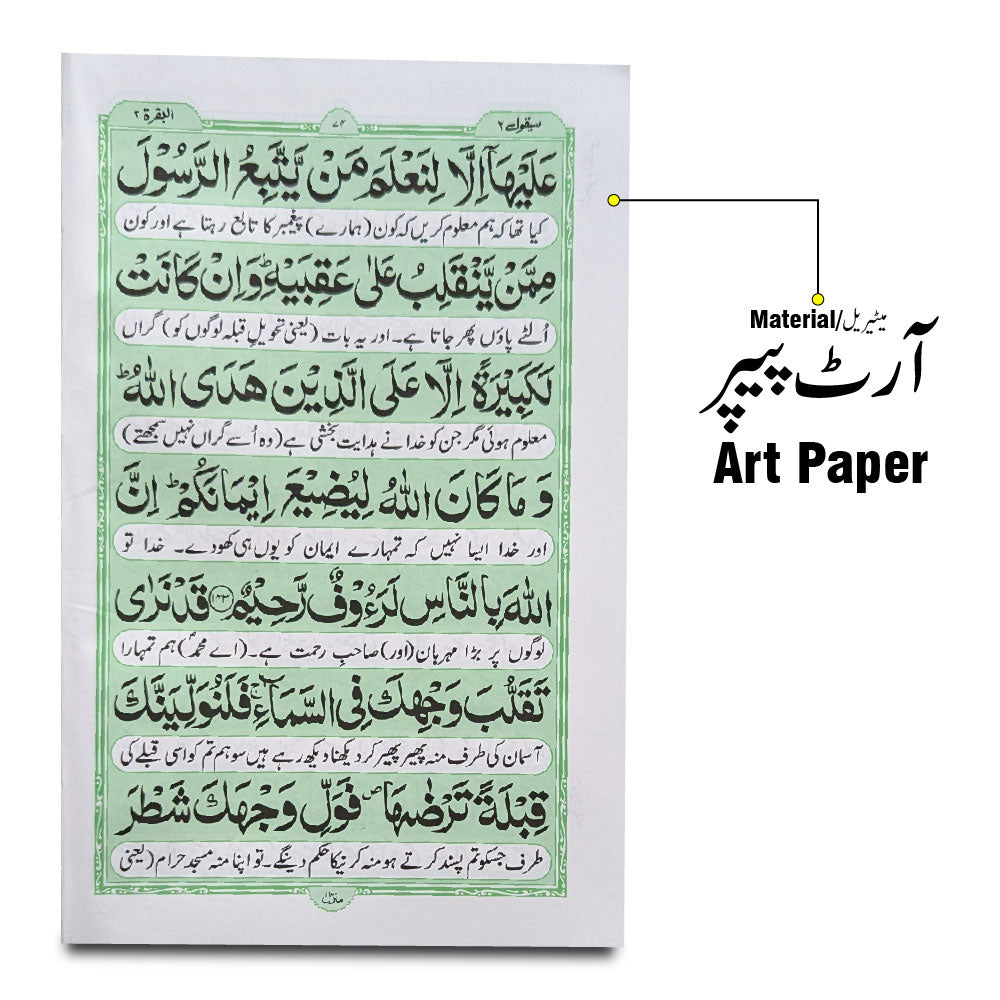 سیقول ۲
۷۴
البقرة ۲
عَلَيْهَآ اِلَّا لِنَعْلَمَ مَنْ يَّتَّبِعُ الرَّسُوْلَ
کیا تھا کہ ہم معلوم کریں کہ کون (ہمارے) پیغمبر کا تابع رہتا ہے اور کون
مِمَّنْ يَّنْقَلِبُ عَلٰى عَقِبَيْهِ ؕ وَاِنْ كَانَتْ
اُلٹے پاؤں پھر جاتا ہے۔ اور یہ بات (یعنی تحویلِ قبلہ لوگوں کو) گراں
لَكَبِيْرَةً اِلَّا عَلَى الَّذِيْنَ هَدَى اللّٰهُ ؕ
معلوم ہوئی مگر جن کو خدا نے ہدایت بخشی ہے (وہ اُسے گراں نہیں سمجھتے)
وَمَا كَانَ اللّٰهُ لِيُضِيْعَ اِيْمَانَكُمْ ؕ اِنَّ
اور خدا ایسا نہیں کہ تمہارے ایمان کو یوں ہی کھو دے۔ خدا تو
اللّٰهَ بِالنَّاسِ لَرَءُوْفٌ رَّحِيْمٌ ۱۴۳ قَدْ نَرٰى
لوگوں پر بڑا مہربان (اور) صاحبِ رحمت ہے۔ (اے محمدؐ) ہم تمہارا
تَقَلُّبَ وَجْهِكَ فِى السَّمَآءِ ۚ فَلَنُوَلِّيَنَّكَ
آسمان کی طرف منہ پھیر پھیر کر دیکھنا دیکھ رہے ہیں سو ہم تم کو اسی قبلے کی
قِبْلَةً تَرْضٰىهَا ۖ فَوَلِّ وَجْهَكَ شَطْرَ
طرف جسکو تم پسند کرتے ہو منہ کرنیکا حکم دینگے۔ تو اپنا منہ مسجد حرام (یعنی
منزل ۱
Material/میٹیریل
آرٹ پیپر
Art Paper